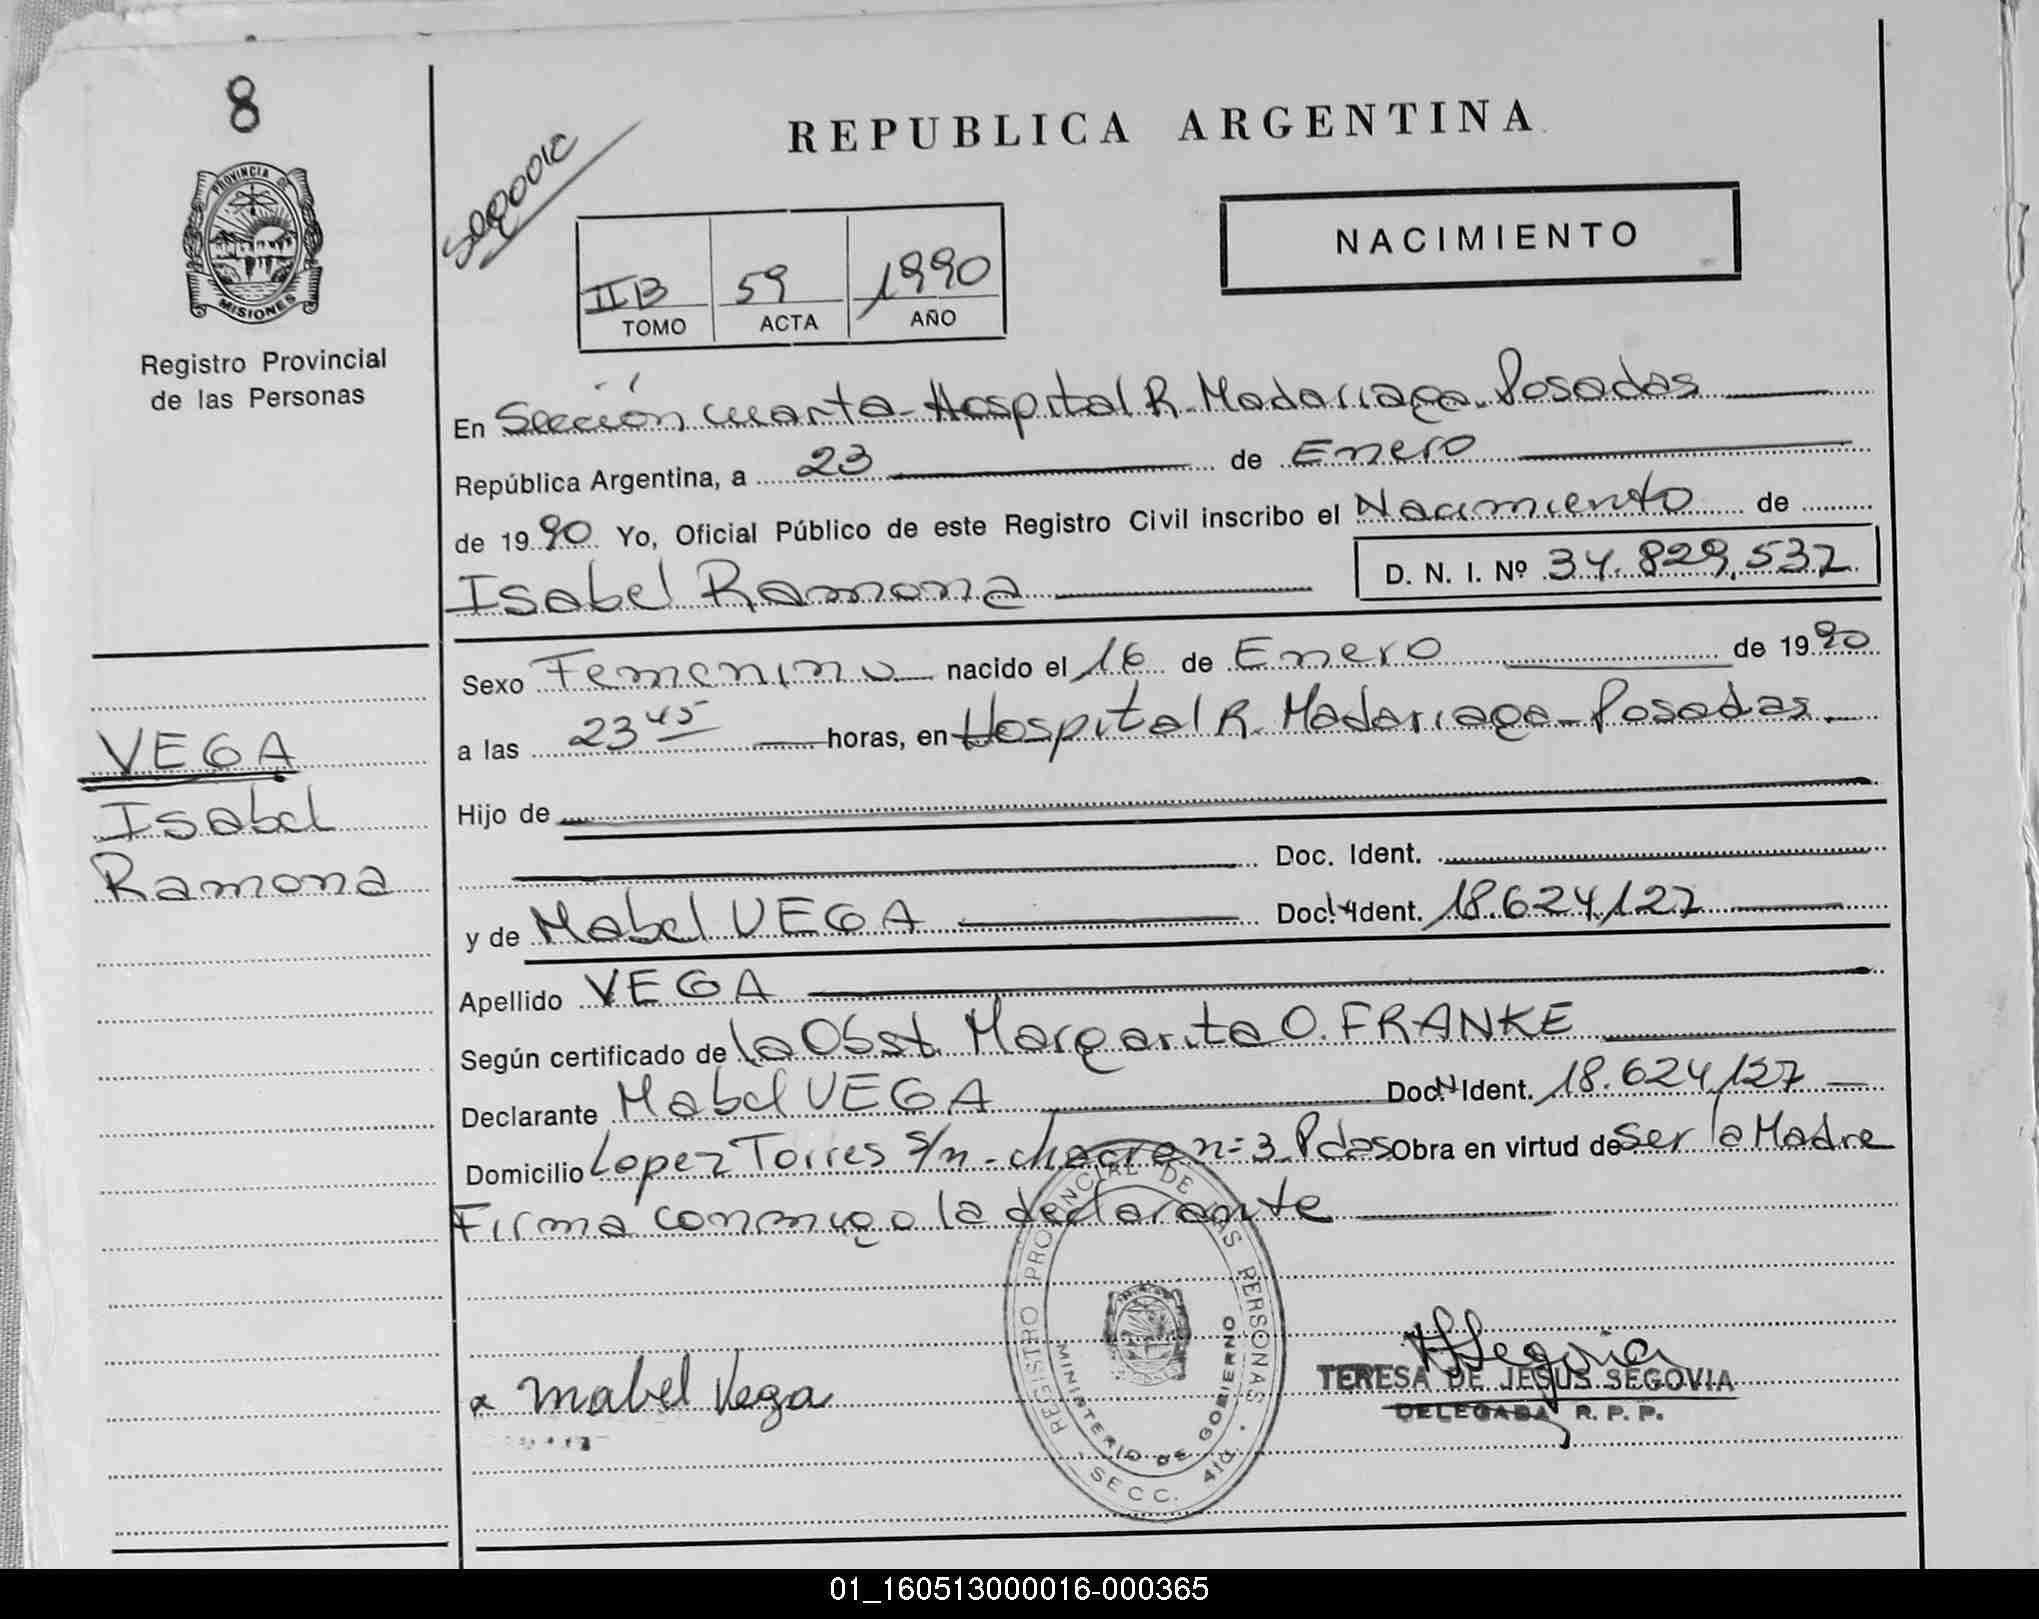 8
PROVINCIA DE
MISIONES
Registro Provincial
de las Personas
REPUBLICA ARGENTINA
NACIMIENTO
IIB 59 1990
TOMO ACTA AÑO
En Sección cuarta-Hospital R. Madariaga-Posadas
República Argentina, a 23 de Enero
de 1990 Yo, Oficial Público de este Registro Civil inscribo el Nacimiento de
Isabel Ramona D. N. I. Nº 34.829.537
Sexo Femenino nacido el 16 de Enero de 1990
a las 23 45 horas, en Hospital R. Madariaga-Posadas
Hijo de
Doc. Ident.
y de Mabel VEGA Doc. Ident. 18.624.127
Apellido VEGA
Según certificado de la Obst. Margarita O. FRANKE
Declarante Mabel VEGA Doc. Ident. 18.624.127
Domicilio Lopez Torres s/n - chacra n= 3 Pdas Obra en virtud de ser la Madre
Firma conmigo la declarante
VEGA
Isabel
Ramona
Mabel Vega
REGISTRO PROVINCIAL DE LAS PERSONAS
MINISTERIO DE GOBIERNO
SECC. 4ta.
TERESA DE JESUS SEGOVIA
DELEGADA R. P. P.
01_160513000016-000365